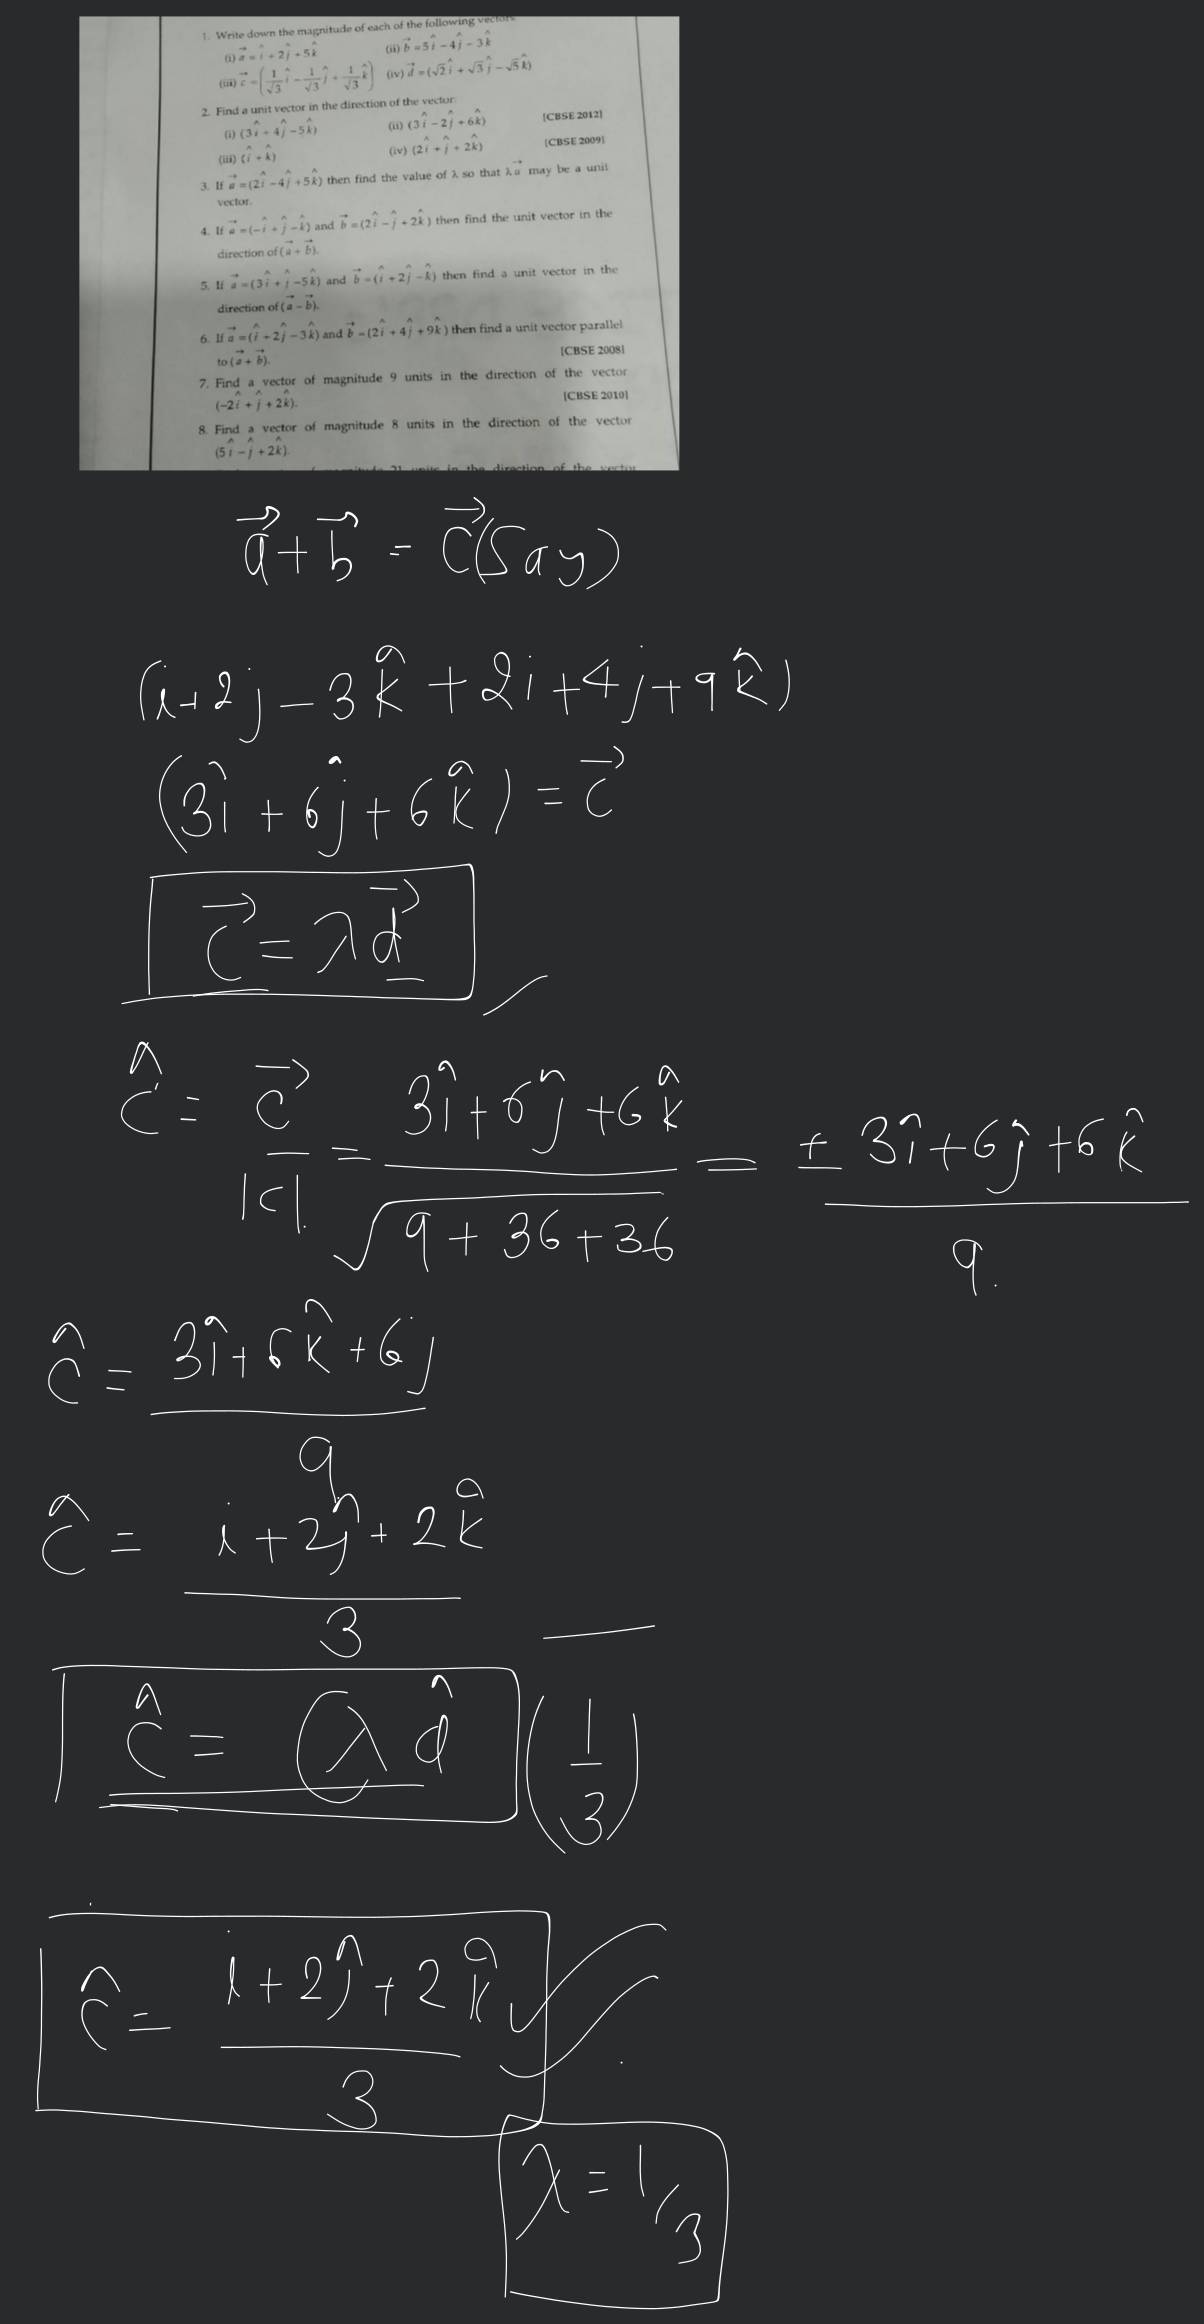 1. Write down the magnitude of each of the following vectors
(i) a⃗ = î + 2ĵ + 5k̂ (ii) b⃗ = 5î − 4ĵ − 3k̂
(iii) c⃗ = (1/√3 î − 1/√3 ĵ + 1/√3 k̂) (iv) d⃗ = (√2 î + √3 ĵ − √5 k̂)
2. Find a unit vector in the direction of the vector:
(i) (3î + 4ĵ − 5k̂) (ii) (3î − 2ĵ + 6k̂) [CBSE 2012]
(iii) (î + k̂) (iv) (2î + ĵ + 2k̂) [CBSE 2009]
3. If a⃗ = (2î − 4ĵ + 5k̂) then find the value of λ so that λa⃗ may be a unit
vector.
4. If a⃗ = (−î + ĵ − k̂) and b⃗ = (2î − ĵ + 2k̂) then find the unit vector in the
direction of (a⃗ + b⃗).
5. If a⃗ = (3î + ĵ − 5k̂) and b⃗ = (î + 2ĵ − k̂) then find a unit vector in the
direction of (a⃗ − b⃗).
6. If a⃗ = (î + 2ĵ − 3k̂) and b⃗ = (2î + 4ĵ + 9k̂) then find a unit vector parallel
to (a⃗ + b⃗). [CBSE 2008]
7. Find a vector of magnitude 9 units in the direction of the vector
(−2î + ĵ + 2k̂). [CBSE 2010]
8. Find a vector of magnitude 8 units in the direction of the vector
(5î − ĵ + 2k̂).
21 units in the direction of the vector
a⃗ + b⃗ = c⃗ (Say)
(i + 2j − 3k̂ + 2i + 4j + 9k̂)
(3î + 6ĵ + 6k̂) = c⃗
c⃗ = λd⃗
ĉ = c⃗/|c| = (3î + 6ĵ + 6k̂)/√(9 + 36 + 36) = ± (3î + 6ĵ + 6k̂)/9.
ĉ = (3î + 6k̂ + 6j)/9
ĉ = (i + 2ĵ + 2k̂)/3
ĉ = λ d̂ (1/3)
ĉ = (i + 2ĵ + 2k̂)/3
λ = 1/3